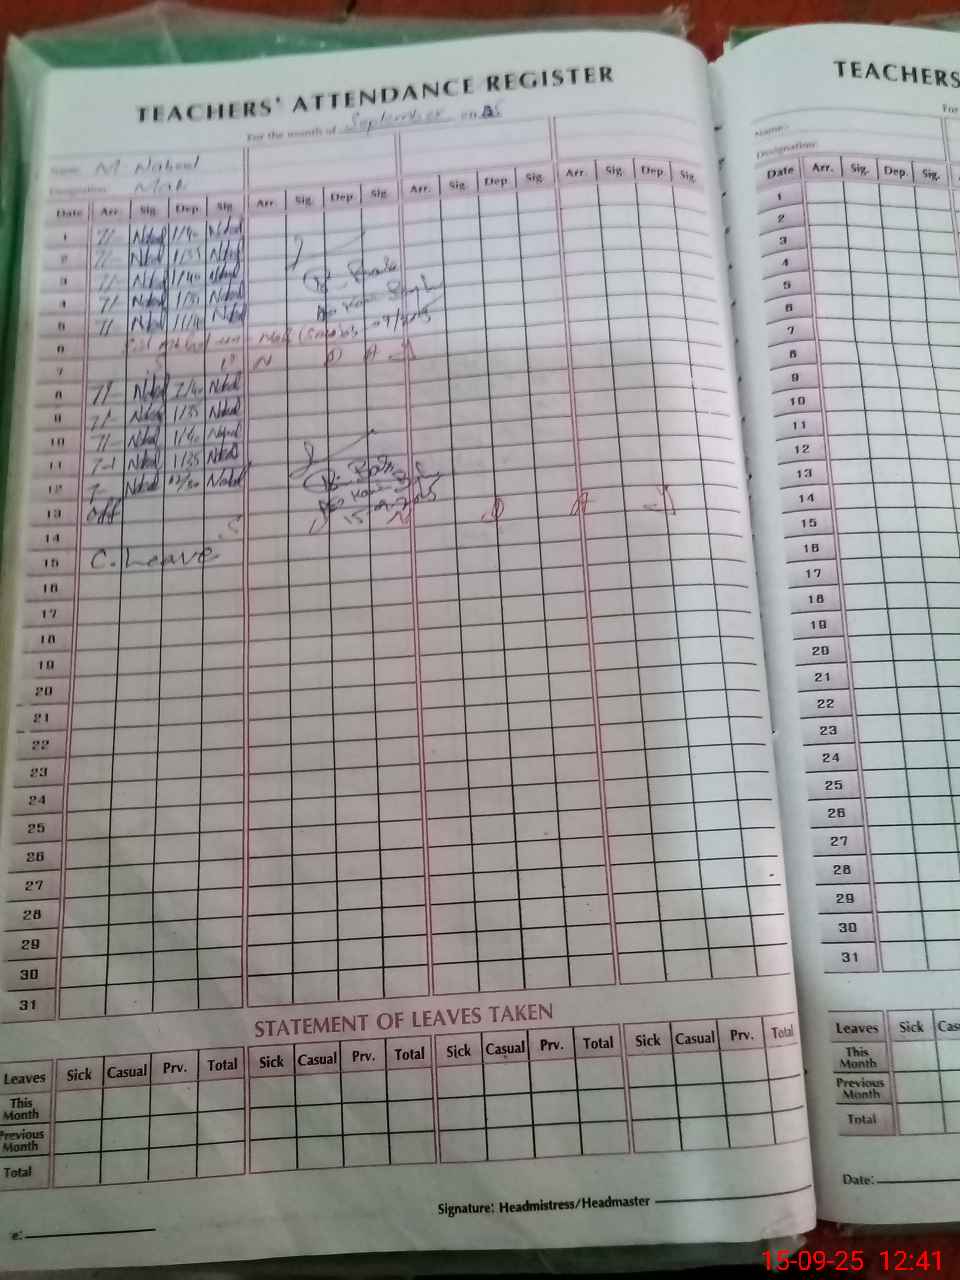 TEACHERS' ATTENDANCE REGISTER
For the month of September
Name: M. Nabeel
Designation:
Date Arr. Sig. Dep. Sig. Arr. Sig. Dep. Sig. Arr. Sig. Dep. Sig. Arr. Sig. Dep. Sig.
1 7/- 1/40
2 7/- 1/35
3 7/- 1/40
4 7/- 1/35
5 7/-
6
7 S U N D A Y
8 7/-
9 7/- 1/35
10 7/- 1/40
11 1/35
12
13 off
14 S U N D A Y
15 C. Leave
16
17
18
19
20
21
22
23
24
25
26
27
28
29
30
31
STATEMENT OF LEAVES TAKEN
Leaves Sick Casual Prv. Total Sick Casual Prv. Total Sick Casual Prv. Total Sick Casual Prv. Total
This Month
Previous Month
Total
Signature: Headmistress/Headmaster
e:
TEACHERS
For
Name:
Designation:
Date Arr. Sig. Dep. Sig.
1
2
3
4
5
6
7
8
9
10
11
12
13
14
15
16
17
18
19
20
21
22
23
24
25
26
27
28
29
30
31
Leaves Sick Cas
This Month
Previous Month
Total
Date:
15-09-25 12:41